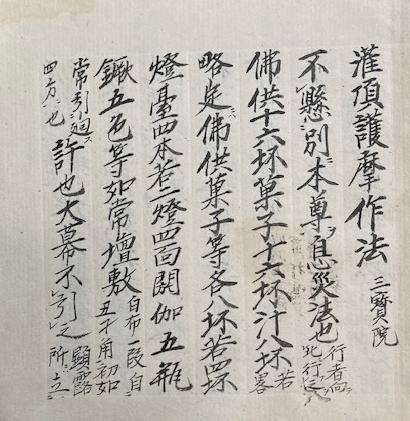 灌頂護摩作法 三寳院
不懸別本尊ヲ息災法也 行者向北行之
佛供十六坏菓子十六坏汁八坏 若畧
略定佛供菓子等各八坏若四坏
燈臺四本若二燈四面閼伽五瓶
鐝五色等如常壇敷 白布一段自丑寅角初如
常引廻ス四方ニ也 許也大幕不引之 顕露所ニ立